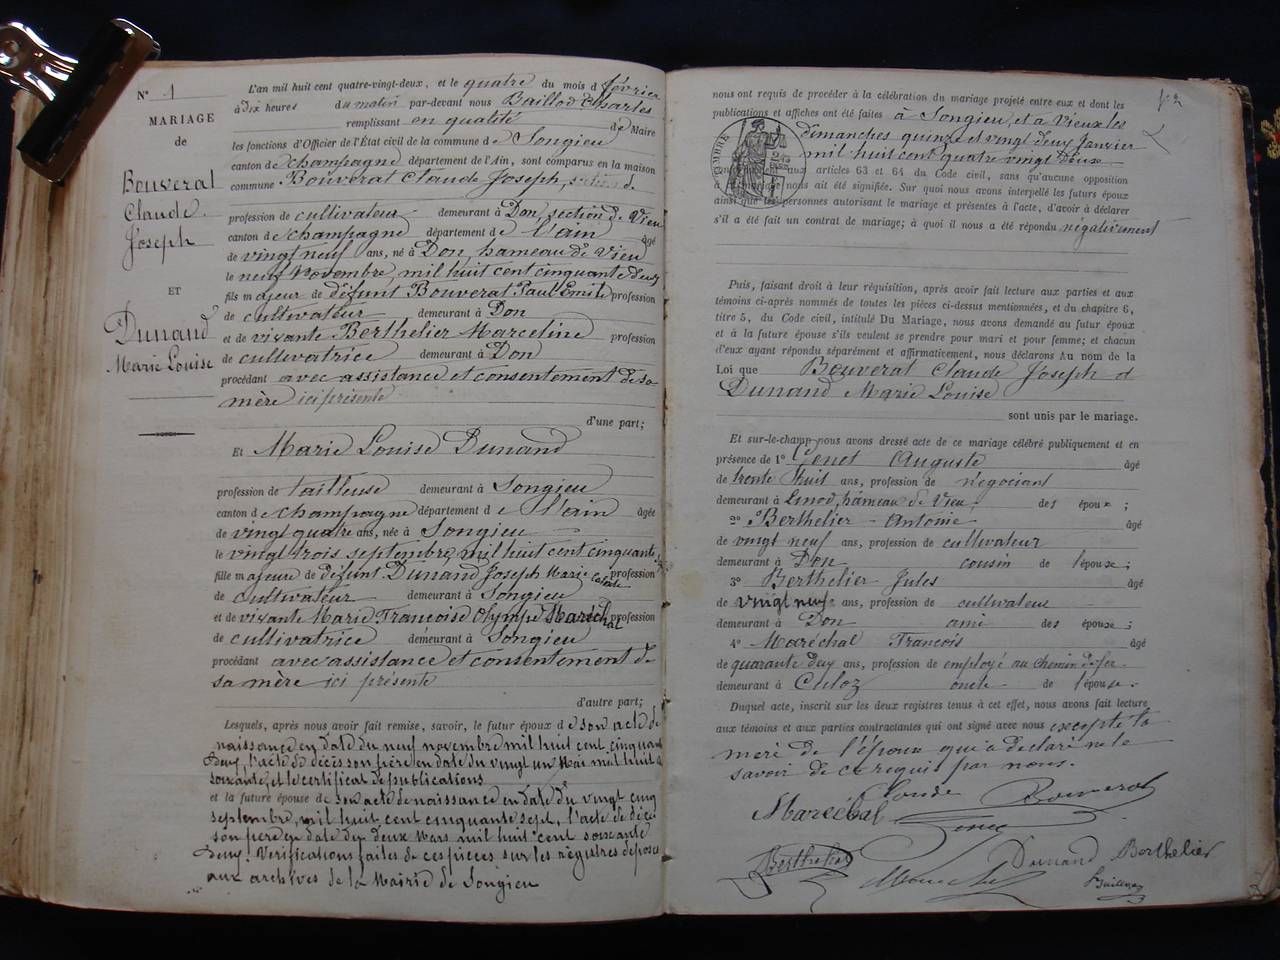 N° 1
MARIAGE
de
Bouverat
Claude
Joseph
ET
Dunand
Marie Louise
L'an mil huit cent quatre-vingt-deux, et le quatre du mois d février
à Dix heures du matin par-devant nous Baillod Charles
remplissant en qualité de Maire
les fonctions d'Officier de l'État civil de la commune de Songieu
canton de Champagne département de l'Ain, sont comparus en la maison
commune Bouverat Claude Joseph,
profession de cultivateur demeurant à Don, section de Vieu
canton de Champagne département de l'ain âgé
de vingt neuf ans, né à Don, hameau de Vieu
le neuf Novembre, mil huit cent cinquante deux
fils majeur de défunt Bouverat Paul Emile profession
de cultivateur demeurant à Don
et de vivante Berthelier Marceline profession
de cultivatrice demeurant à Don
procédant avec assistance et consentement de sa
mère ici présente
d'une part;
Et Marie Louise Dunand
profession de tailleuse demeurant à Songieu
canton de Champagne département de l'ain âgée
de vingt quatre ans, née à Songieu
le vingt trois septembre, mil huit cent cinquante
fille majeure de défunt Dunand Joseph Marie profession
de cultivateur demeurant à Songieu
et de vivante Marie Francoise Olympe Maréchal profession
de cultivatrice demeurant à Songieu
procédant avec assistance et consentement de
sa mère ici présente
d'autre part;
Lesquels, après nous avoir fait remise, savoir, le futur époux de son acte de
naissance en date du neuf novembre mil huit cent cinquante
deux, l'acte de décès son père en date du vingt un Mai mil huit c
soixante, et le certificat de publications
et la future épouse de son acte de naissance en date du vingt cinq
septembre, mil huit cent cinquante sept, l'acte de décès
son père en date du deux Mars mil huit cent soixante
deux. Vérifications faites de ces pièces sur les régistres déposés
aux archives de la Mairie de Songieu
nous ont requis de procéder à la célébration du mariage projeté entre eux et dont les
publications et affiches ont été faites à Songieu, et à Vieux les
dimanches quinze et vingt deux Janvier
mil huit cent quatre vingt deux
TIMBRE
conformément aux articles 63 et 64 du Code civil, sans qu'aucune opposition
à ce mariage nous ait été signifiée. Sur quoi nous avons interpellé les futurs époux
ainsi que les personnes autorisant le mariage et présentes à l'acte, d'avoir à déclarer
s'il a été fait un contrat de mariage; à quoi il nous a été répondu négativement
Puis, faisant droit à leur réquisition, après avoir fait lecture aux parties et aux
témoins ci-après nommés de toutes les pièces ci-dessus mentionnées, et du chapitre 6,
titre 5, du Code civil, intitulé Du Mariage, nous avons demandé au futur époux
et à la future épouse s'ils veulent se prendre pour mari et pour femme; et chacun
d'eux ayant répondu séparément et affirmativement, nous déclarons au nom de la
Loi que Bouverat Claude Joseph et
Dunand Marie Louise
sont unis par le mariage.
Et sur-le-champ nous avons dressé acte de ce mariage célébré publiquement et en
présence de 1° Genet Auguste âgé
de trente huit ans, profession de négociant
demeurant à Linod, hameau de Vieu, des époux;
2° Berthelier Antoine âgé
de vingt neuf ans, profession de cultivateur
demeurant à Don cousin de l'épouse;
3° Berthelier Jules âgé
de vingt neuf ans, profession de cultivateur
demeurant à Don ami des épouse;
4° Maréchal Francois âgé
de quarante deux ans, profession de employé au chemin de fer
demeurant à Culoz oncle de l'épouse.
Duquel acte, inscrit sur les deux registres tenus à cet effet, nous avons fait lecture
aux témoins et aux parties contractantes qui ont signé avec nous excepté la
mère de l'époux qui a déclaré ne le
savoir de ce requis par nous.
Claude Bouverat
Maréchal Genet
Dunand Berthelier
Berthelier